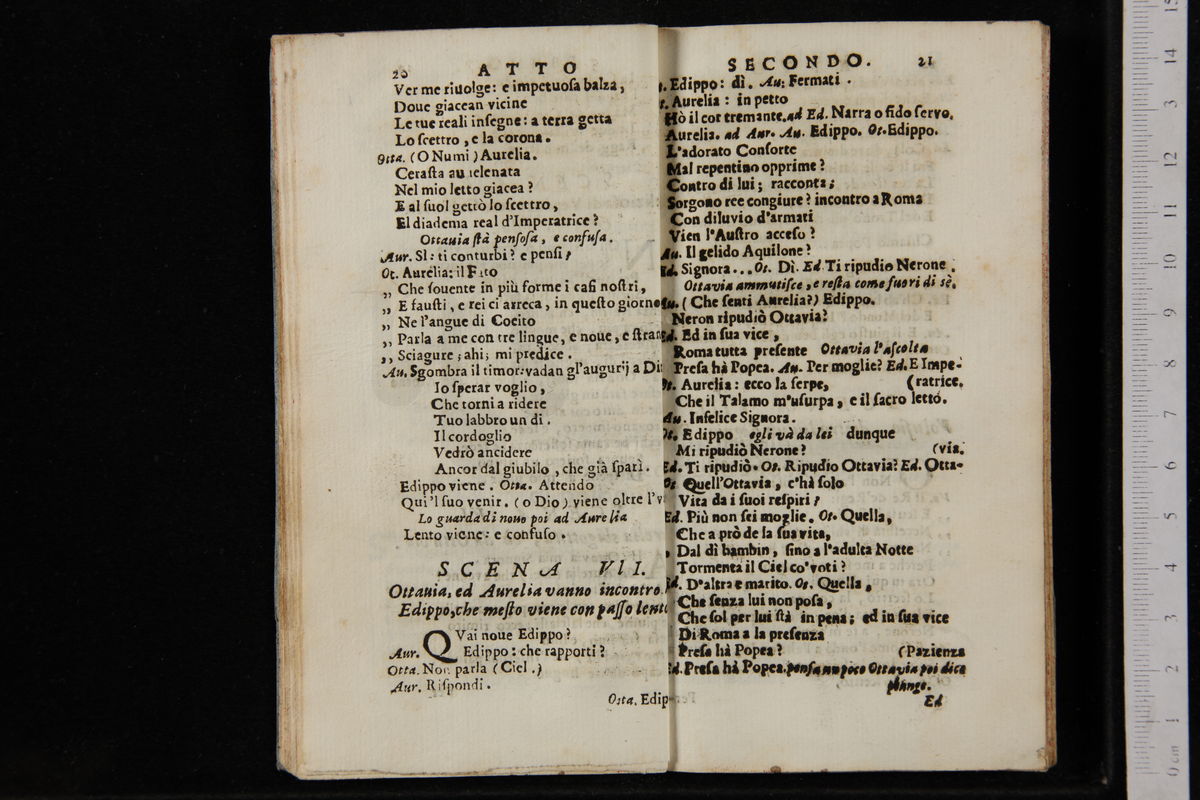 20 ATTO
Ver me riuolge: e impetuoſa balza,
Doue giacean vicine
Le tue reali inſegne: a terra getta
Lo ſcettro, e la corona.
Otta. (O Numi) Aurelia.
Ceraſta auuelenata
Nel mio letto giacea?
E al ſuol gettò lo ſcettro,
El diadema real d'Imperatrice?
Ottauia ſtà penſoſa, e confuſa.
Aur. Sì: ti conturbi? e penſi?
Ot. Aurelia: il Fato
,, Che ſouente in più forme i caſi noſtri,
,, E fauſti, e rei ci arreca, in queſto giorno
,, Ne l'angue di Cocito
,, Parla a me con tre lingue, e noue, e ſtran
,, Sciagure; ahi; mi predice.
Au. Sgombra il timor: vadan gl'augurij a Di
Io ſperar voglio,
Che torni a ridere
Tuo labbro un dì.
Il cordoglio
Vedrò ancidere
Ancor dal giubilo, che già ſparì.
Edippo viene. Otta. Attendo
Qui 'l ſuo venir. (o Dio) viene oltre l'v
Lo guarda di nouo poi ad Aurelia
Lento viene: e confuſo.
SCENA VII.
Ottauia, ed Aurelia vanno incontro
Edippo, che meſto viene con paſſo lento
Aur. QVai noue Edippo?
Edippo: che rapporti?
Otta. Non parla (Ciel.)
Aur. Riſpondi.
Otta. Edip-
SECONDO. 21
Edippo: dì. Au: Fermati.
Aurelia: in petto
Hò il cor tremante. ad Ed. Narra o fido ſervo.
Aurelia. ad Aur. Au. Edippo. Ot. Edippo.
L'adorato Conſorte
Mal repentino opprime?
Contro di lui; racconta;
Sorgono ree congiure? incontro a Roma
Con diluvio d'armati
Vien l'Auſtro acceſo?
Au. Il gelido Aquilone?
Ed. Signora... Ot. Dì. Ed. Ti ripudio Nerone.
Ottavia ammutiſce, e reſta come fuori di sè.
Au. (Che ſenti Aurelia?) Edippo.
Neron ripudiò Ottavia?
Ed. Ed in ſua vice,
Roma tutta preſente Ottavia l'aſcolta
Preſa hà Popea. Au. Per moglie? Ed. E Impe-
Ot. Aurelia: ecco la ſerpe, (ratrice.
Che il Talamo m'uſurpa, e il ſacro letto.
Au. Infelice Signora.
Ot. Edippo egli và da lei dunque
Mi ripudiò Nerone? (via.
Ed. Ti ripudiò. Ot. Ripudio Ottavia? Ed. Otta-
Ot Quell'Ottavia, c'hà ſolo
Vita da i ſuoi reſpiri?
Ed. Più non ſei moglie. Ot. Quella,
Che a prò de la ſua vita,
Dal dì bambin, ſino a l'adulta Notte
Tormenta il Ciel co' voti?
Ed. D'altra e marito. Ot. Quella,
Che ſenza lui non poſa,
Che ſol per lui ſtà in pena; ed in ſua vice
Di Roma a la preſenza
Preſa hà Popea? (Pazienza
Ed. Preſa hà Popea. penſa un poco Ottavia poi dice
piange.
Ed